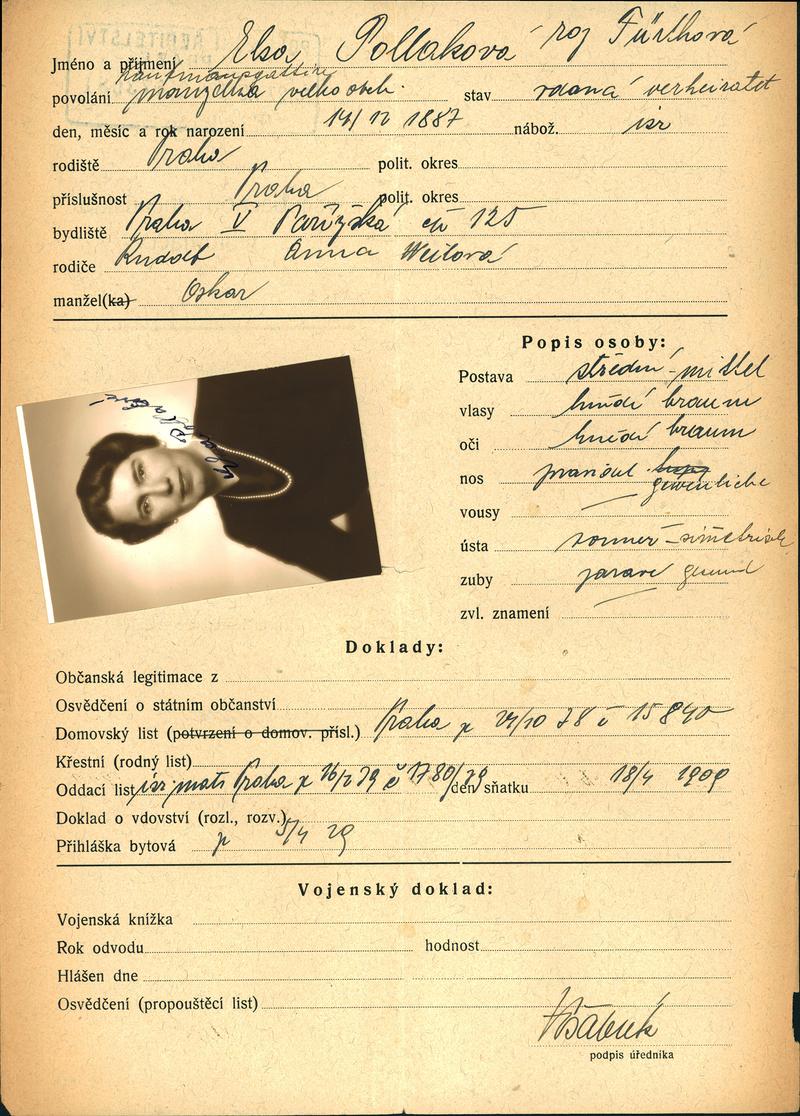 Jméno a příjmení Elsa Pollaková roz Fürthová
Kaufmannsgattin
povolání manželka velkoobch. stav vdaná verheiratet
den, měsíc a rok narození 1887 nábož. isr
rodiště Praha polit. okres
příslušnost Praha polit. okres
bydliště Praha V Pařížská čís 125
rodiče Rudolf Anna Weilová
manžel(ka) Oskar
Popis osoby:
Postava střední - mittel
vlasy hnědé braun
oči hnědé braun
nos
vousy —
ústa souměr - simetrisch
zuby zdravé gesund
zvl. znamení —
Elsa Pollaková
Doklady:
Občanská legitimace z
Osvědčení o státním občanství
Domovský list (potvrzení o domov. přísl.) Praha z 24/10 28 č 15840
Křestní (rodný list)
Oddací list isr mat. Praha z č 1780/39 den sňatku 18/4 1909
Doklad o vdovství (rozl., rozv.)
Přihláška bytová z 5/4 29
Vojenský doklad:
Vojenská knížka
Rok odvodu hodnost
Hlášen dne
Osvědčení (propouštěcí list)
podpis úředníka